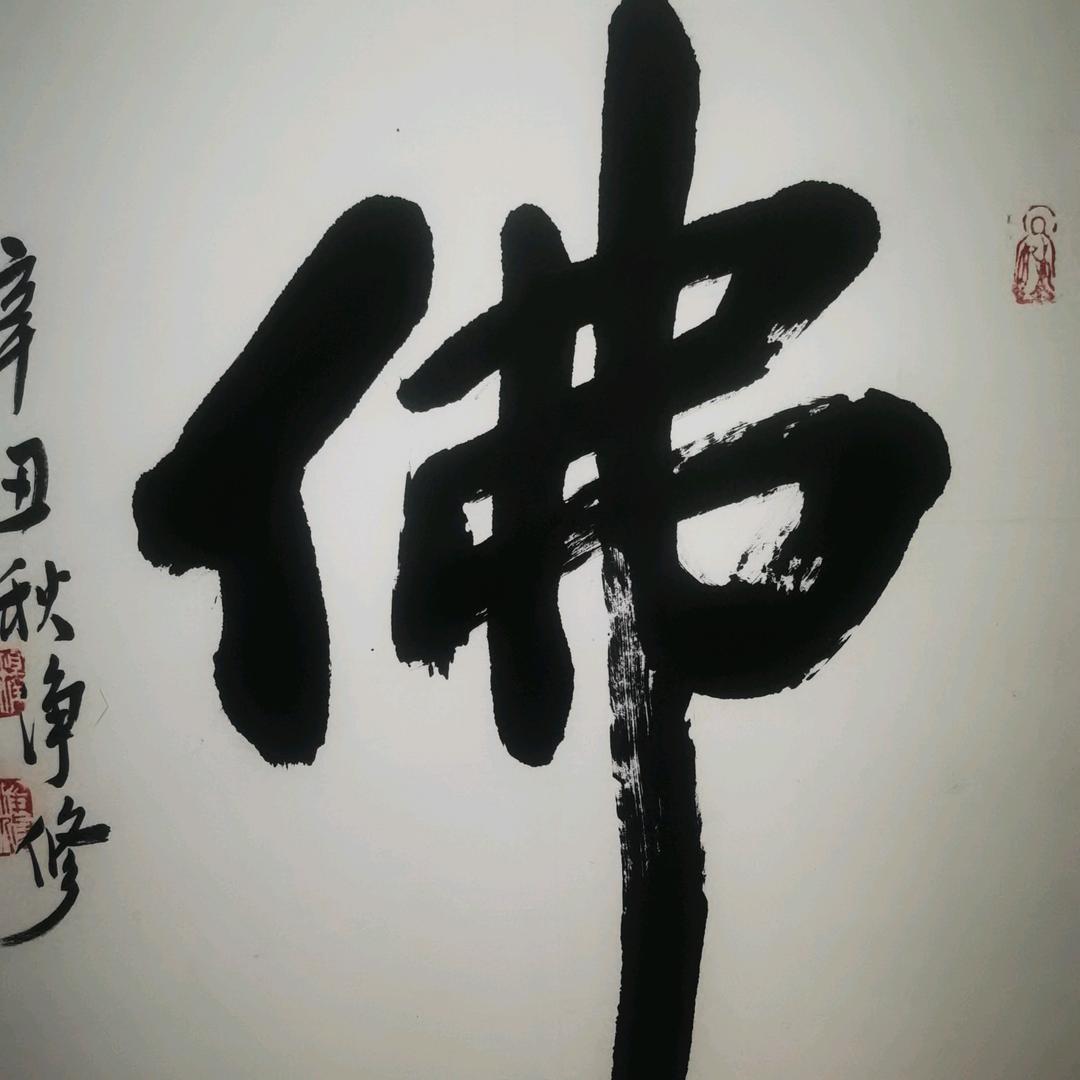 佛
辛丑秋净修